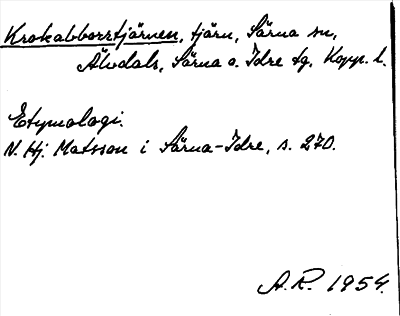 Krokabborrtjärnen, tjärn, Särna sn,
Älvdals, Särna o. Idre tg, Kopp. l.
Etymologi.
N. Hj. Matsson i Särna-Idre, s. 270.
A.R. 1954.